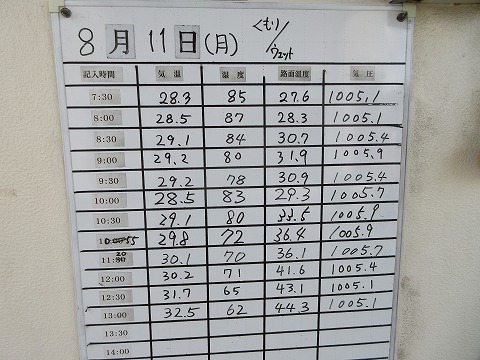 8月11日(月) くもり/ウェット
記入時間 気温 湿度 路面温度 気圧
7:30 28.3 85 27.6 1005.1
8:00 28.5 87 28.3 1005.1
8:30 29.1 84 30.7 1005.4
9:00 29.2 80 31.9 1005.9
9:30 29.2 78 30.9 1005.4
10:00 28.5 83 29.3 1005.7
10:30 29.1 80 33.5 1005.9
10:55 29.8 72 36.4 1005.9
11:20 30.1 70 36.1 1005.7
12:00 30.2 71 41.6 1005.4
12:30 31.7 65 43.1 1005.1
13:00 32.5 62 44.3 1005.1
13:30
14:00